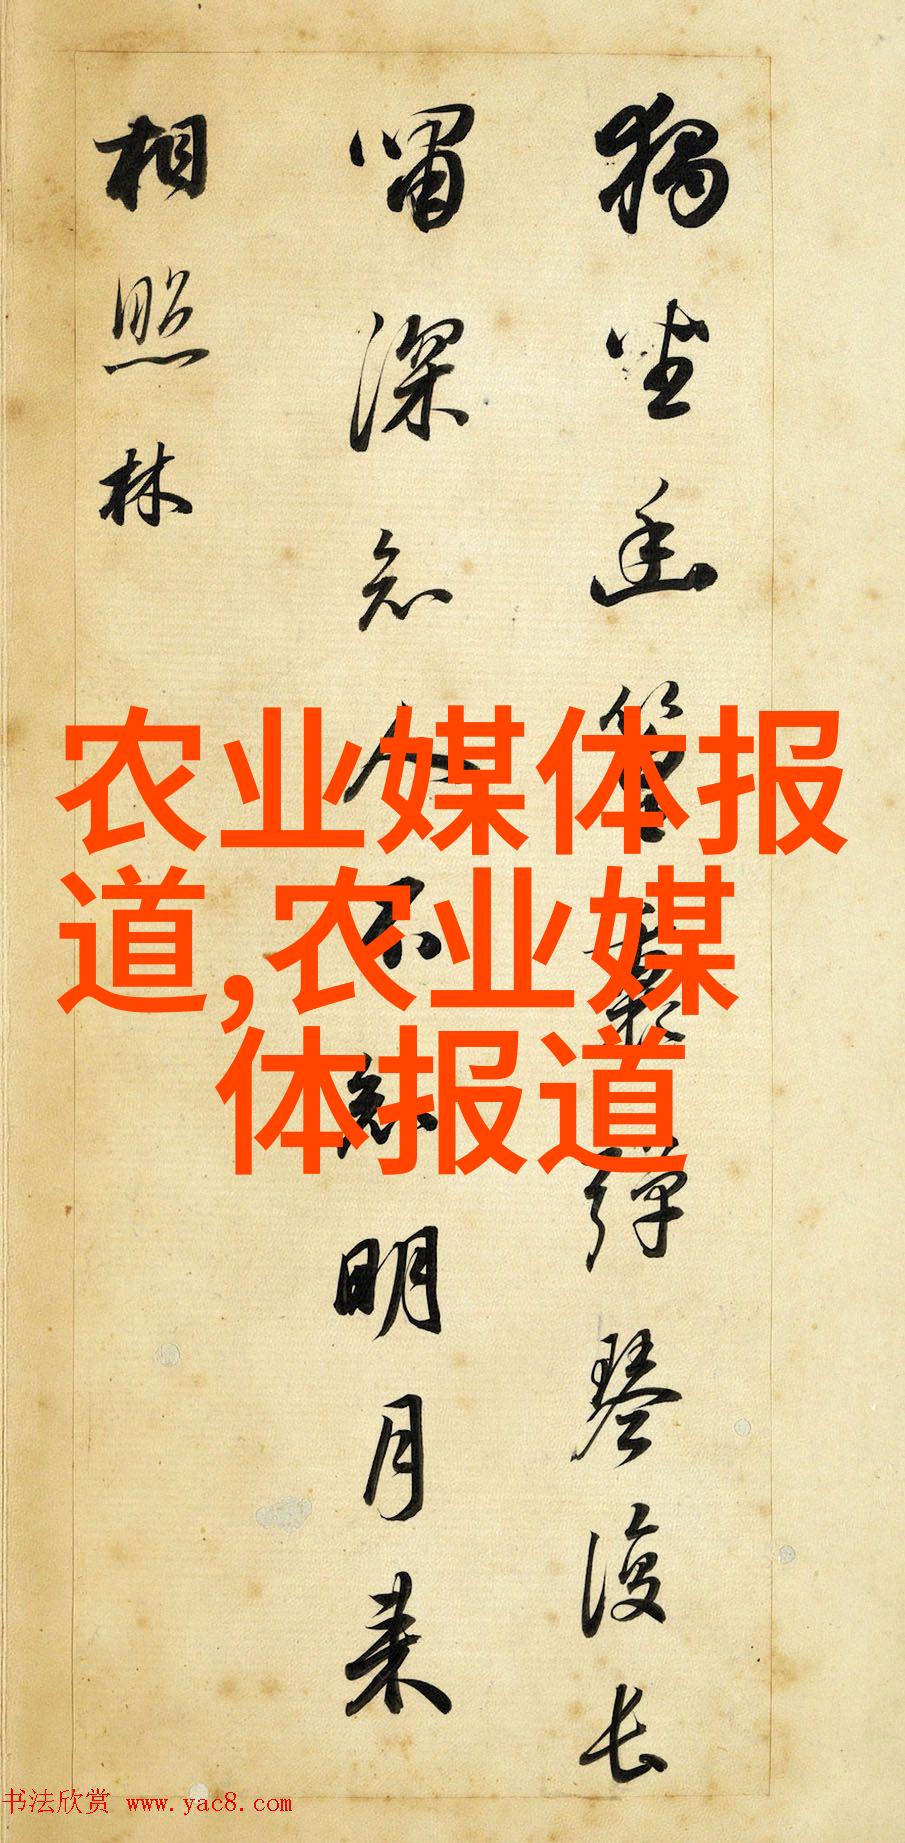 獨坐幽篁裏彈琴復長
嘯深人不明月来
相照林
农业媒体报
道,农业媒
体报道
书法欣赏 www.yac8.com